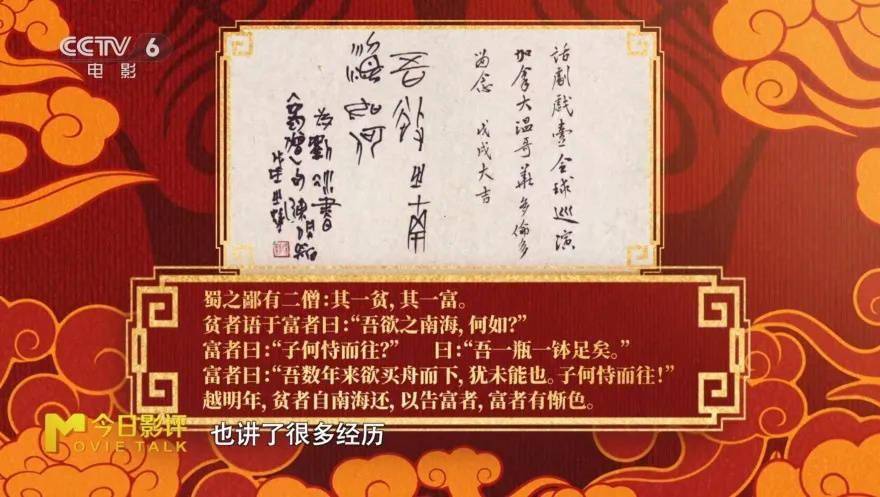 CCTV 6
电影
话劇戲臺全球巡演
加拿大温哥華多倫多
为念 戊戌大吉
吾欲之南
海何如
蜀之鄙有二僧：其一贫，其一富。
贫者语于富者曰：“吾欲之南海，何如？”
富者曰：“子何恃而往？” 曰：“吾一瓶一钵足矣。”
富者曰：“吾数年来欲买舟而下，犹未能也。子何恃而往！”
越明年，贫者自南海还，以告富者，富者有惭色。
今日影评
MOVIE TALK
也讲了很多经历